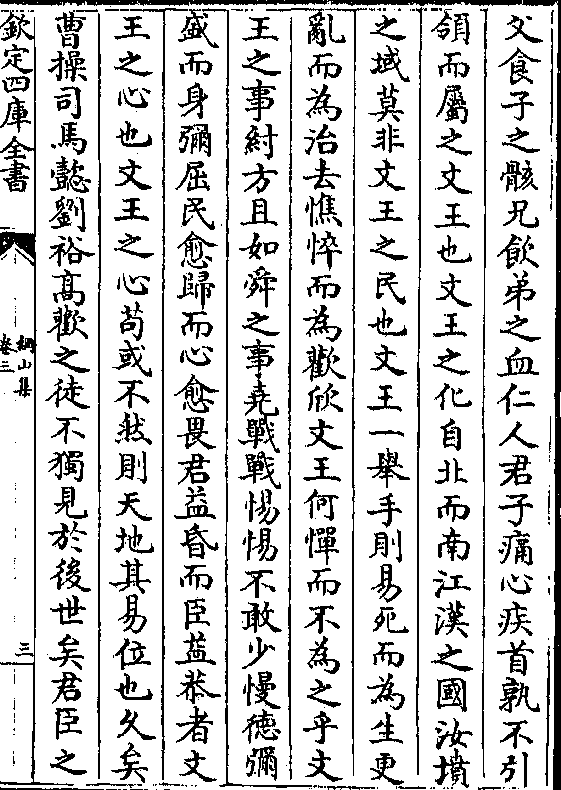 父食子之骸兄飲弟之血仁人君子痛心疾首孰不引
領而屬之文王也文王之化自北而南江漢之國汝墳
之域莫非文王之民也文王一舉手則易死而為生更
亂而為治去憔悴而為歡欣文王何憚而不為之乎文
王之事紂方且如舜之事堯戰戰惕惕不敢少慢德彌
盛而身彌屈民愈歸而心愈畏君益昏而臣益恭者文
王之心也文王之心苟或不然則天地其易位也久矣
曹操司馬懿劉裕高歡之徒不獨見於後世矣君臣之
欽定四庫全書
網山集
卷三
三